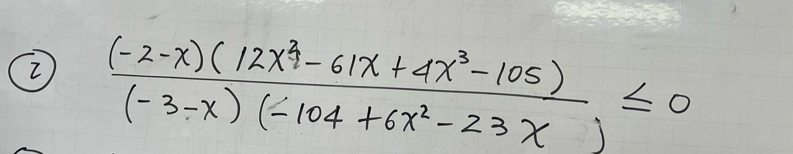 ② (-2-x)(12x²-61x+4x³-105)
(-3-x)(-104+6x²-23x) ≤ 0